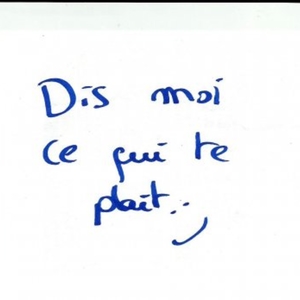 Dis moi
ce qui te
plait :)